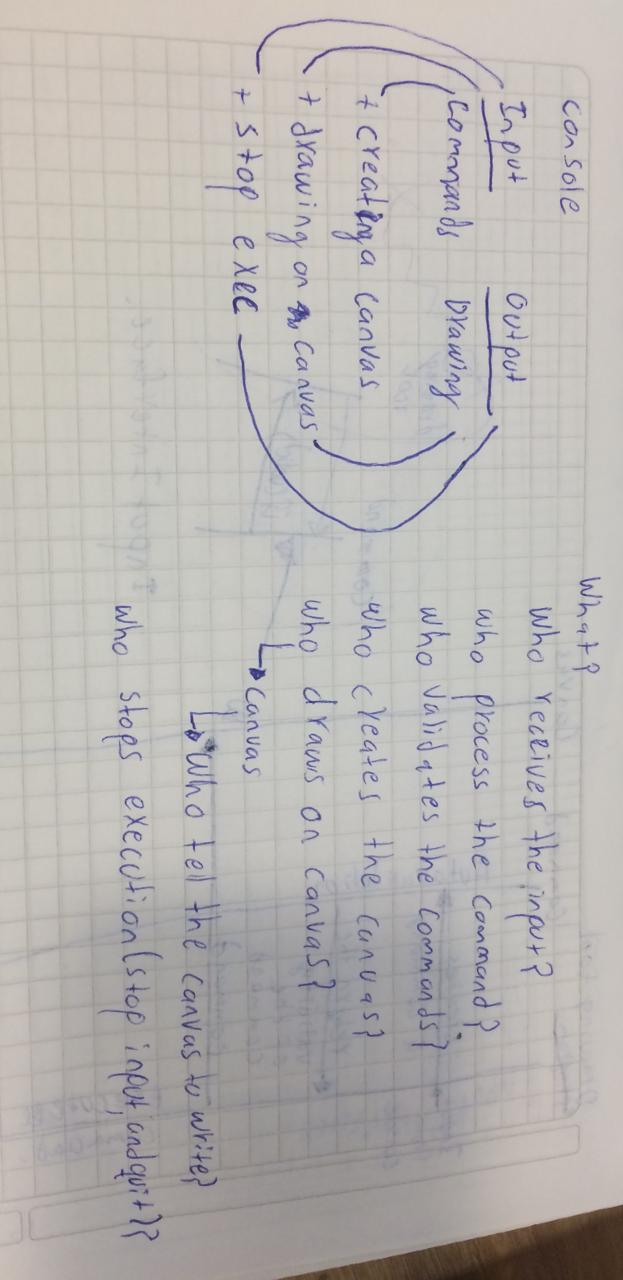 console
Input Output
Commands Drawing
+ creating a canvas
+ drawing on canvas
+ stop exec
What?
Who receives the input?
who process the command?
who validates the commands?
who creates the canvas?
who draws on canvas?
canvas
Who tell the canvas to write?
who stops execution (stop input, and quit)?